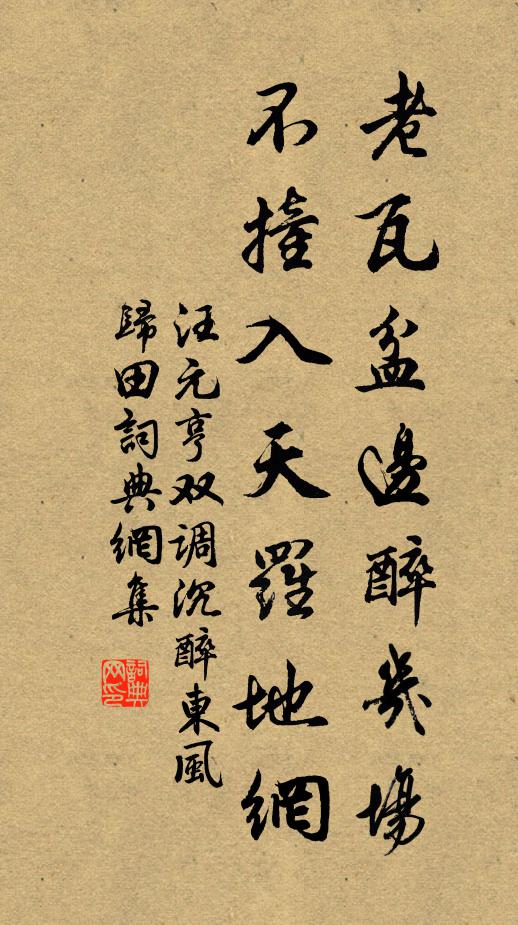 老瓦盆邊醉幾場
不撞入天羅地網
汪元亨双调沉醉東風
歸田詞典網集
詞典网印